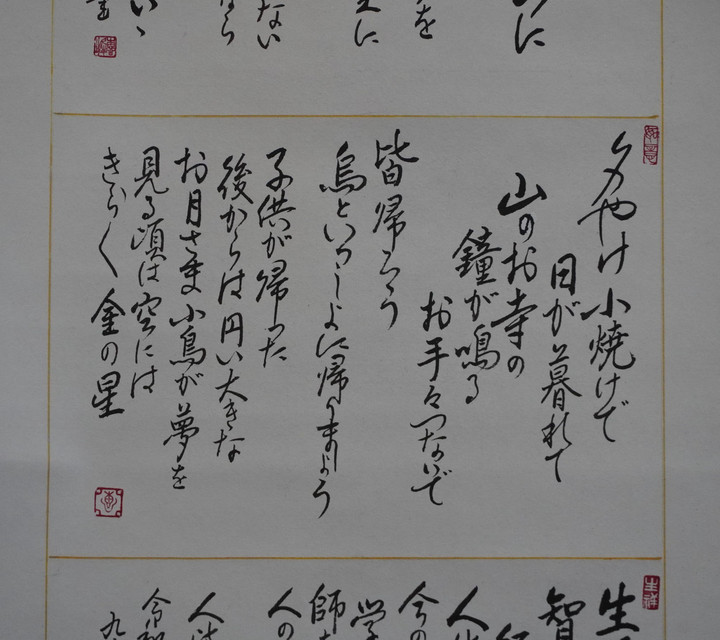 に
を
に
ない
夕やけ小焼けで
日が暮れて
山のお寺の
鐘が鳴る
お手々つないで
皆帰ろう
烏といっしょに帰りましょう
子供が帰った
後からは円い大きな
お月さま小鳥が夢を
見る頃は空には
きら〱金の星
生
智
今の
学
師
人の
令和
九